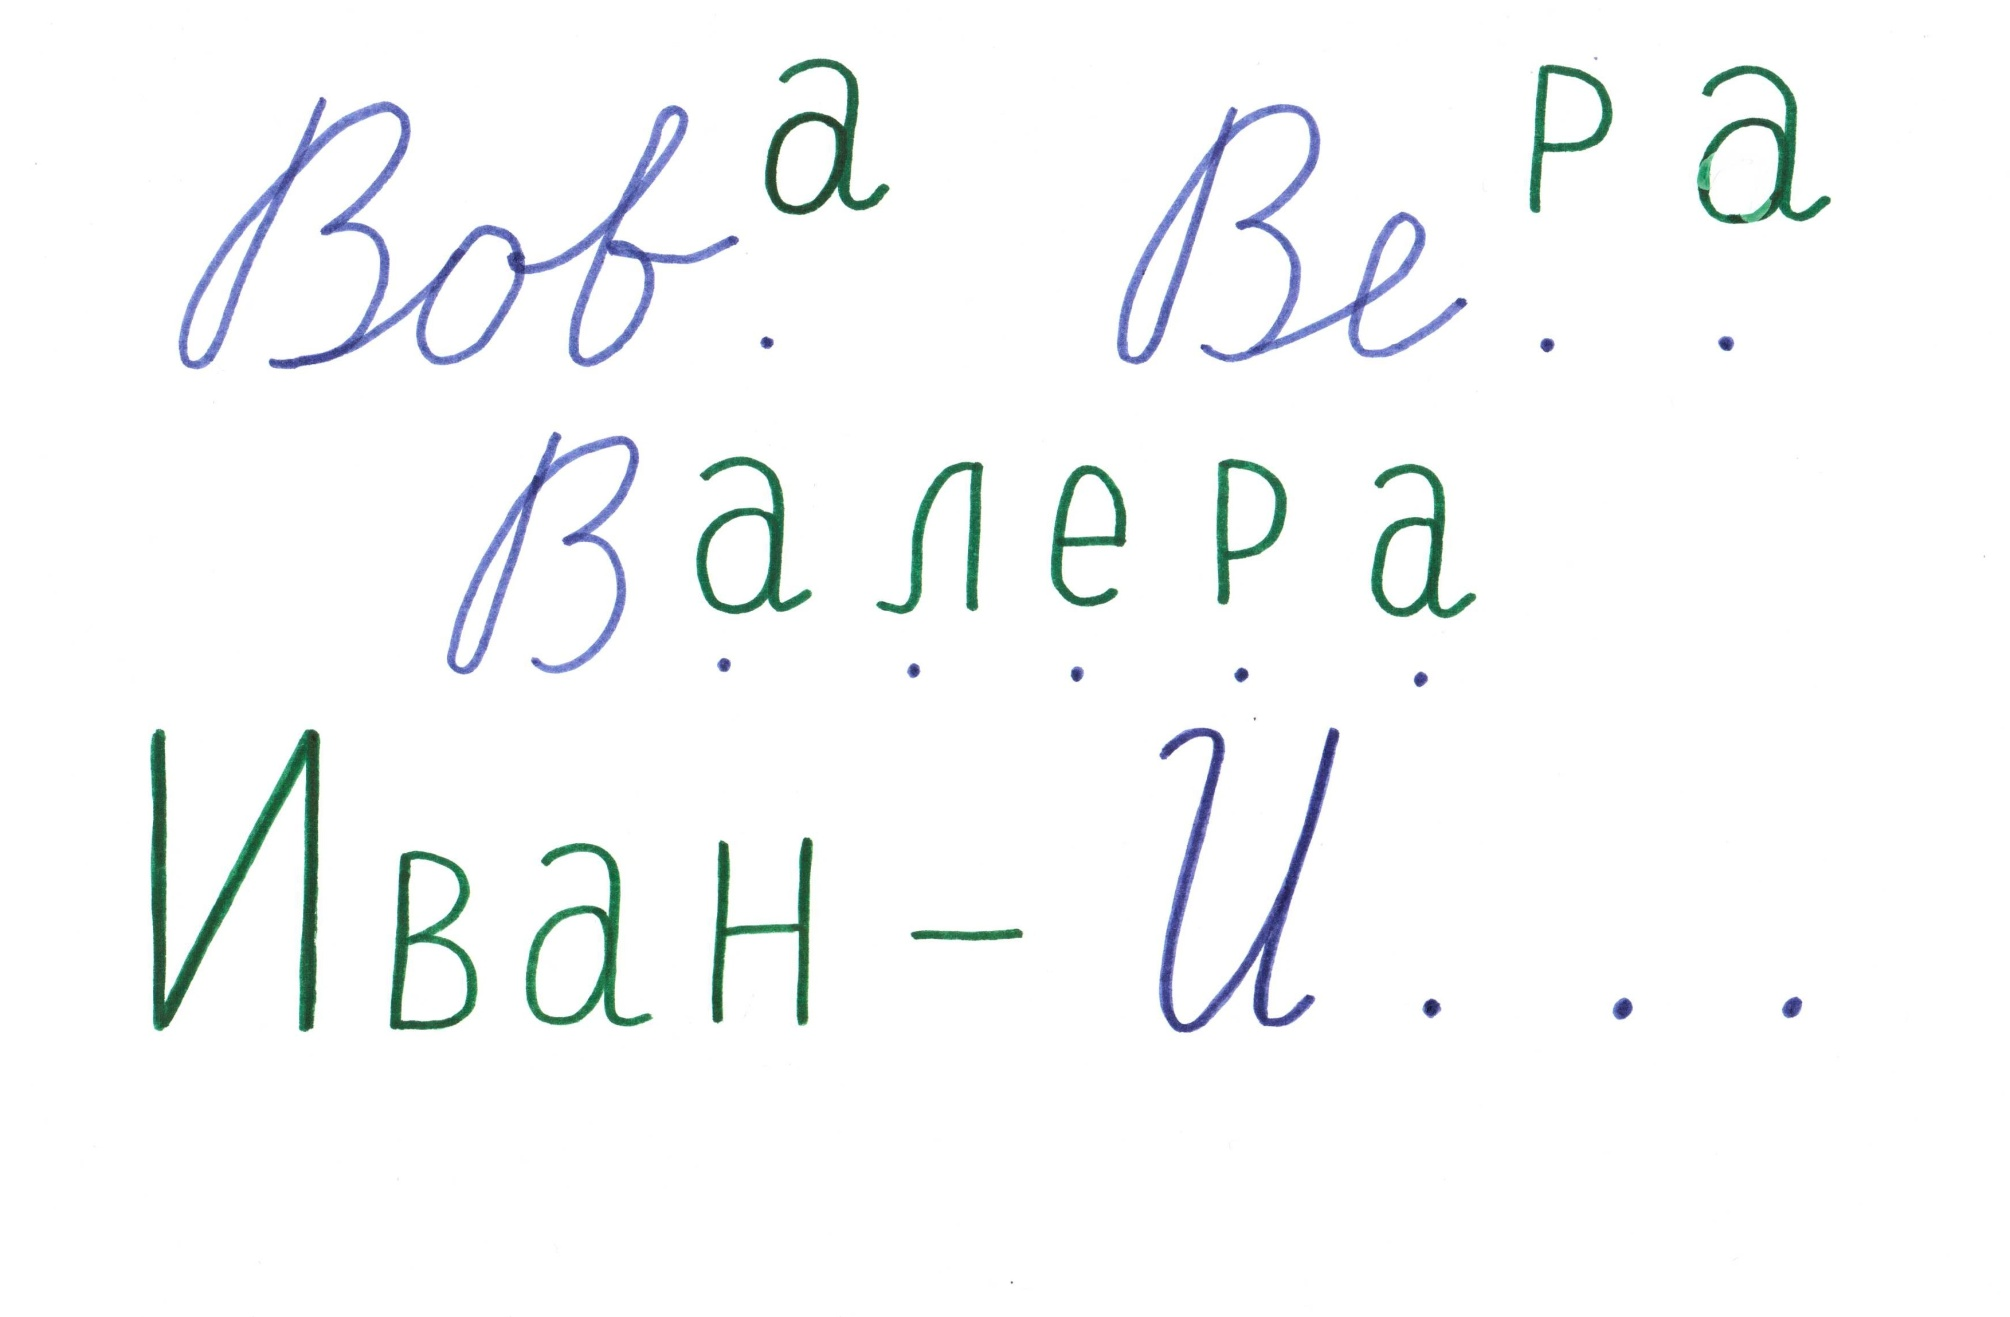 Вова. Вера..
Валера.....
Иван – И...